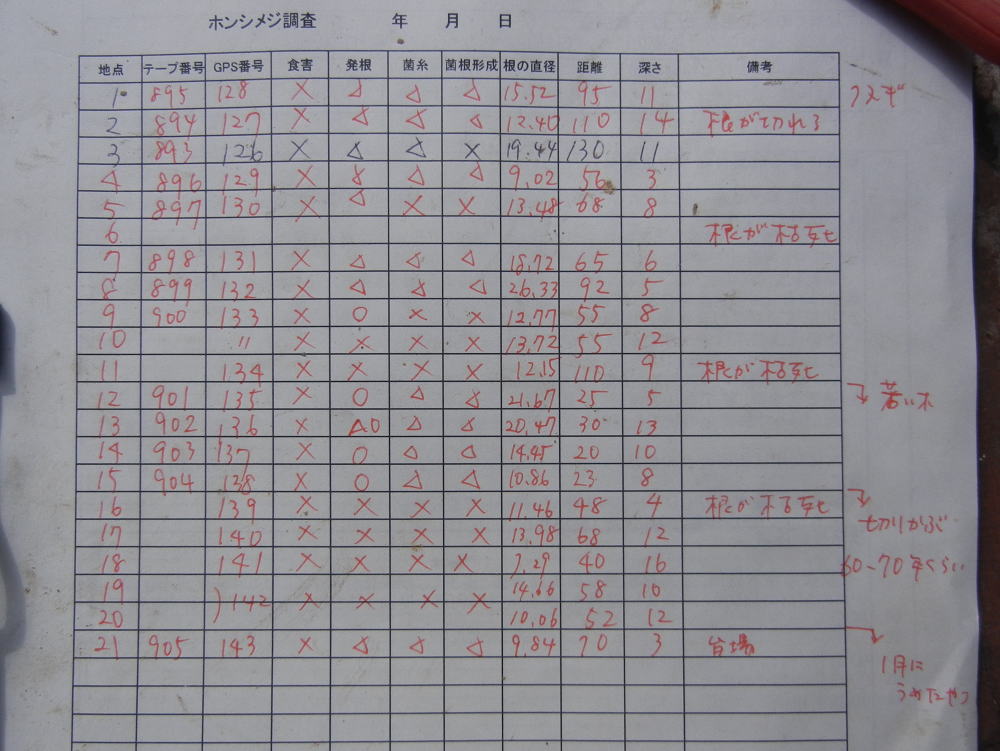 ホンシメジ調査 年 月 日
地点 テープ番号 GPS番号 食害 発根 菌糸 菌根形成 根の直径 距離 深さ 備考
1 895 128 × △ △ △ 15.52 95 11
2 894 127 × △ △ △ 12.40 110 14 根が切れる
3 893 126 × △ △ × 19.44 130 11
4 896 129 × △ △ 9.02 56 3
5 897 130 × △ × × 13.48 68 8
6 根が枯死
7 898 131 × △ △ △ 18.72 65 6
8 899 132 × △ △ △ 26.33 92 5
9 900 133 × ○ × × 12.77 55 8
10 〃 × × × × 13.72 55 12
11 134 × × × × 12.15 110 9 根が枯死
12 901 135 × ○ △ △ 21.67 25 5
13 902 136 × △○ △ △ 20.47 30 13
14 903 137 × ○ △ △ 14.45 20 10
15 904 138 × ○ △ △ 10.86 23 8
16 139 × × × × 11.46 48 4 根が枯死
17 140 × × × × 13.98 68 12
18 141 × × × × 7.29 40 16
19 14.66 58 10
)142 × × × ×
20 10.06 52 12
21 905 143 × △ △ △ 9.84 70 3 台場
若い木
切りかぶ
60~70年くらい
1月に
うめたやつ